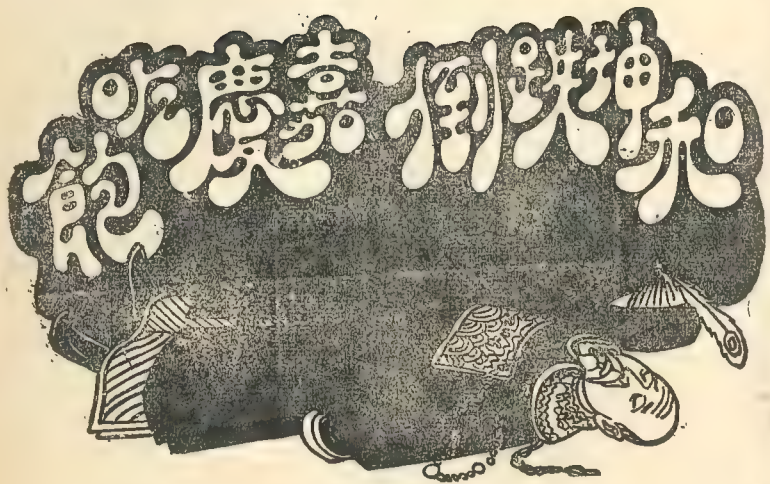 和珅跌倒 嘉慶吃飽